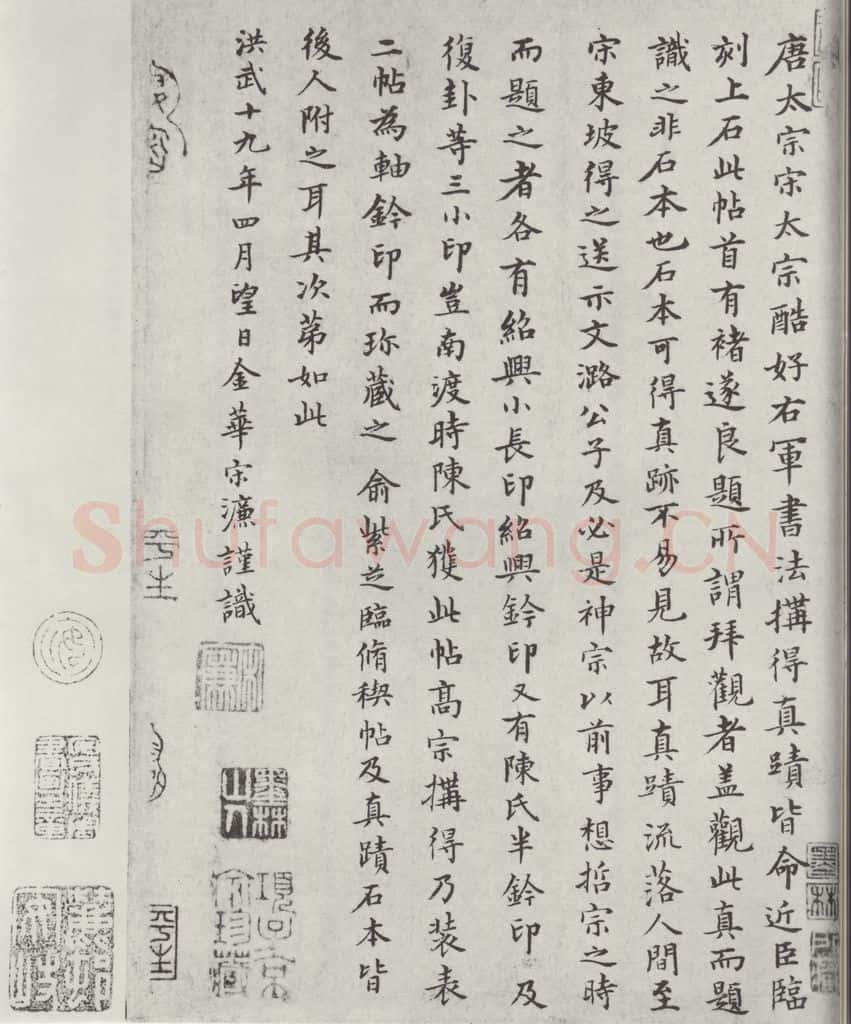 唐太宗宋太宗酷好右軍書法搆得真蹟皆命近臣臨
刻上石此帖首有褚遂良題所謂拜觀者盖觀此真而題
識之非石本也石本可得真跡不易見故耳真蹟流落人間至
宋東坡得之送示文潞公子及必是神宗以前事想哲宗之時
而題之者各有紹興小長印紹興鈐印又有陳氏半鈐印 及
復卦等三小印豈南渡時陳氏獲此帖高宗搆得乃装表
二帖為軸鈐印而珎藏之 俞紫芝臨脩稧帖及真蹟石本皆
後人附之耳其次苐如此
洪武十九年四月望日金華宋濂謹識
墨林
項子京
家珍藏
Shufawang.CN